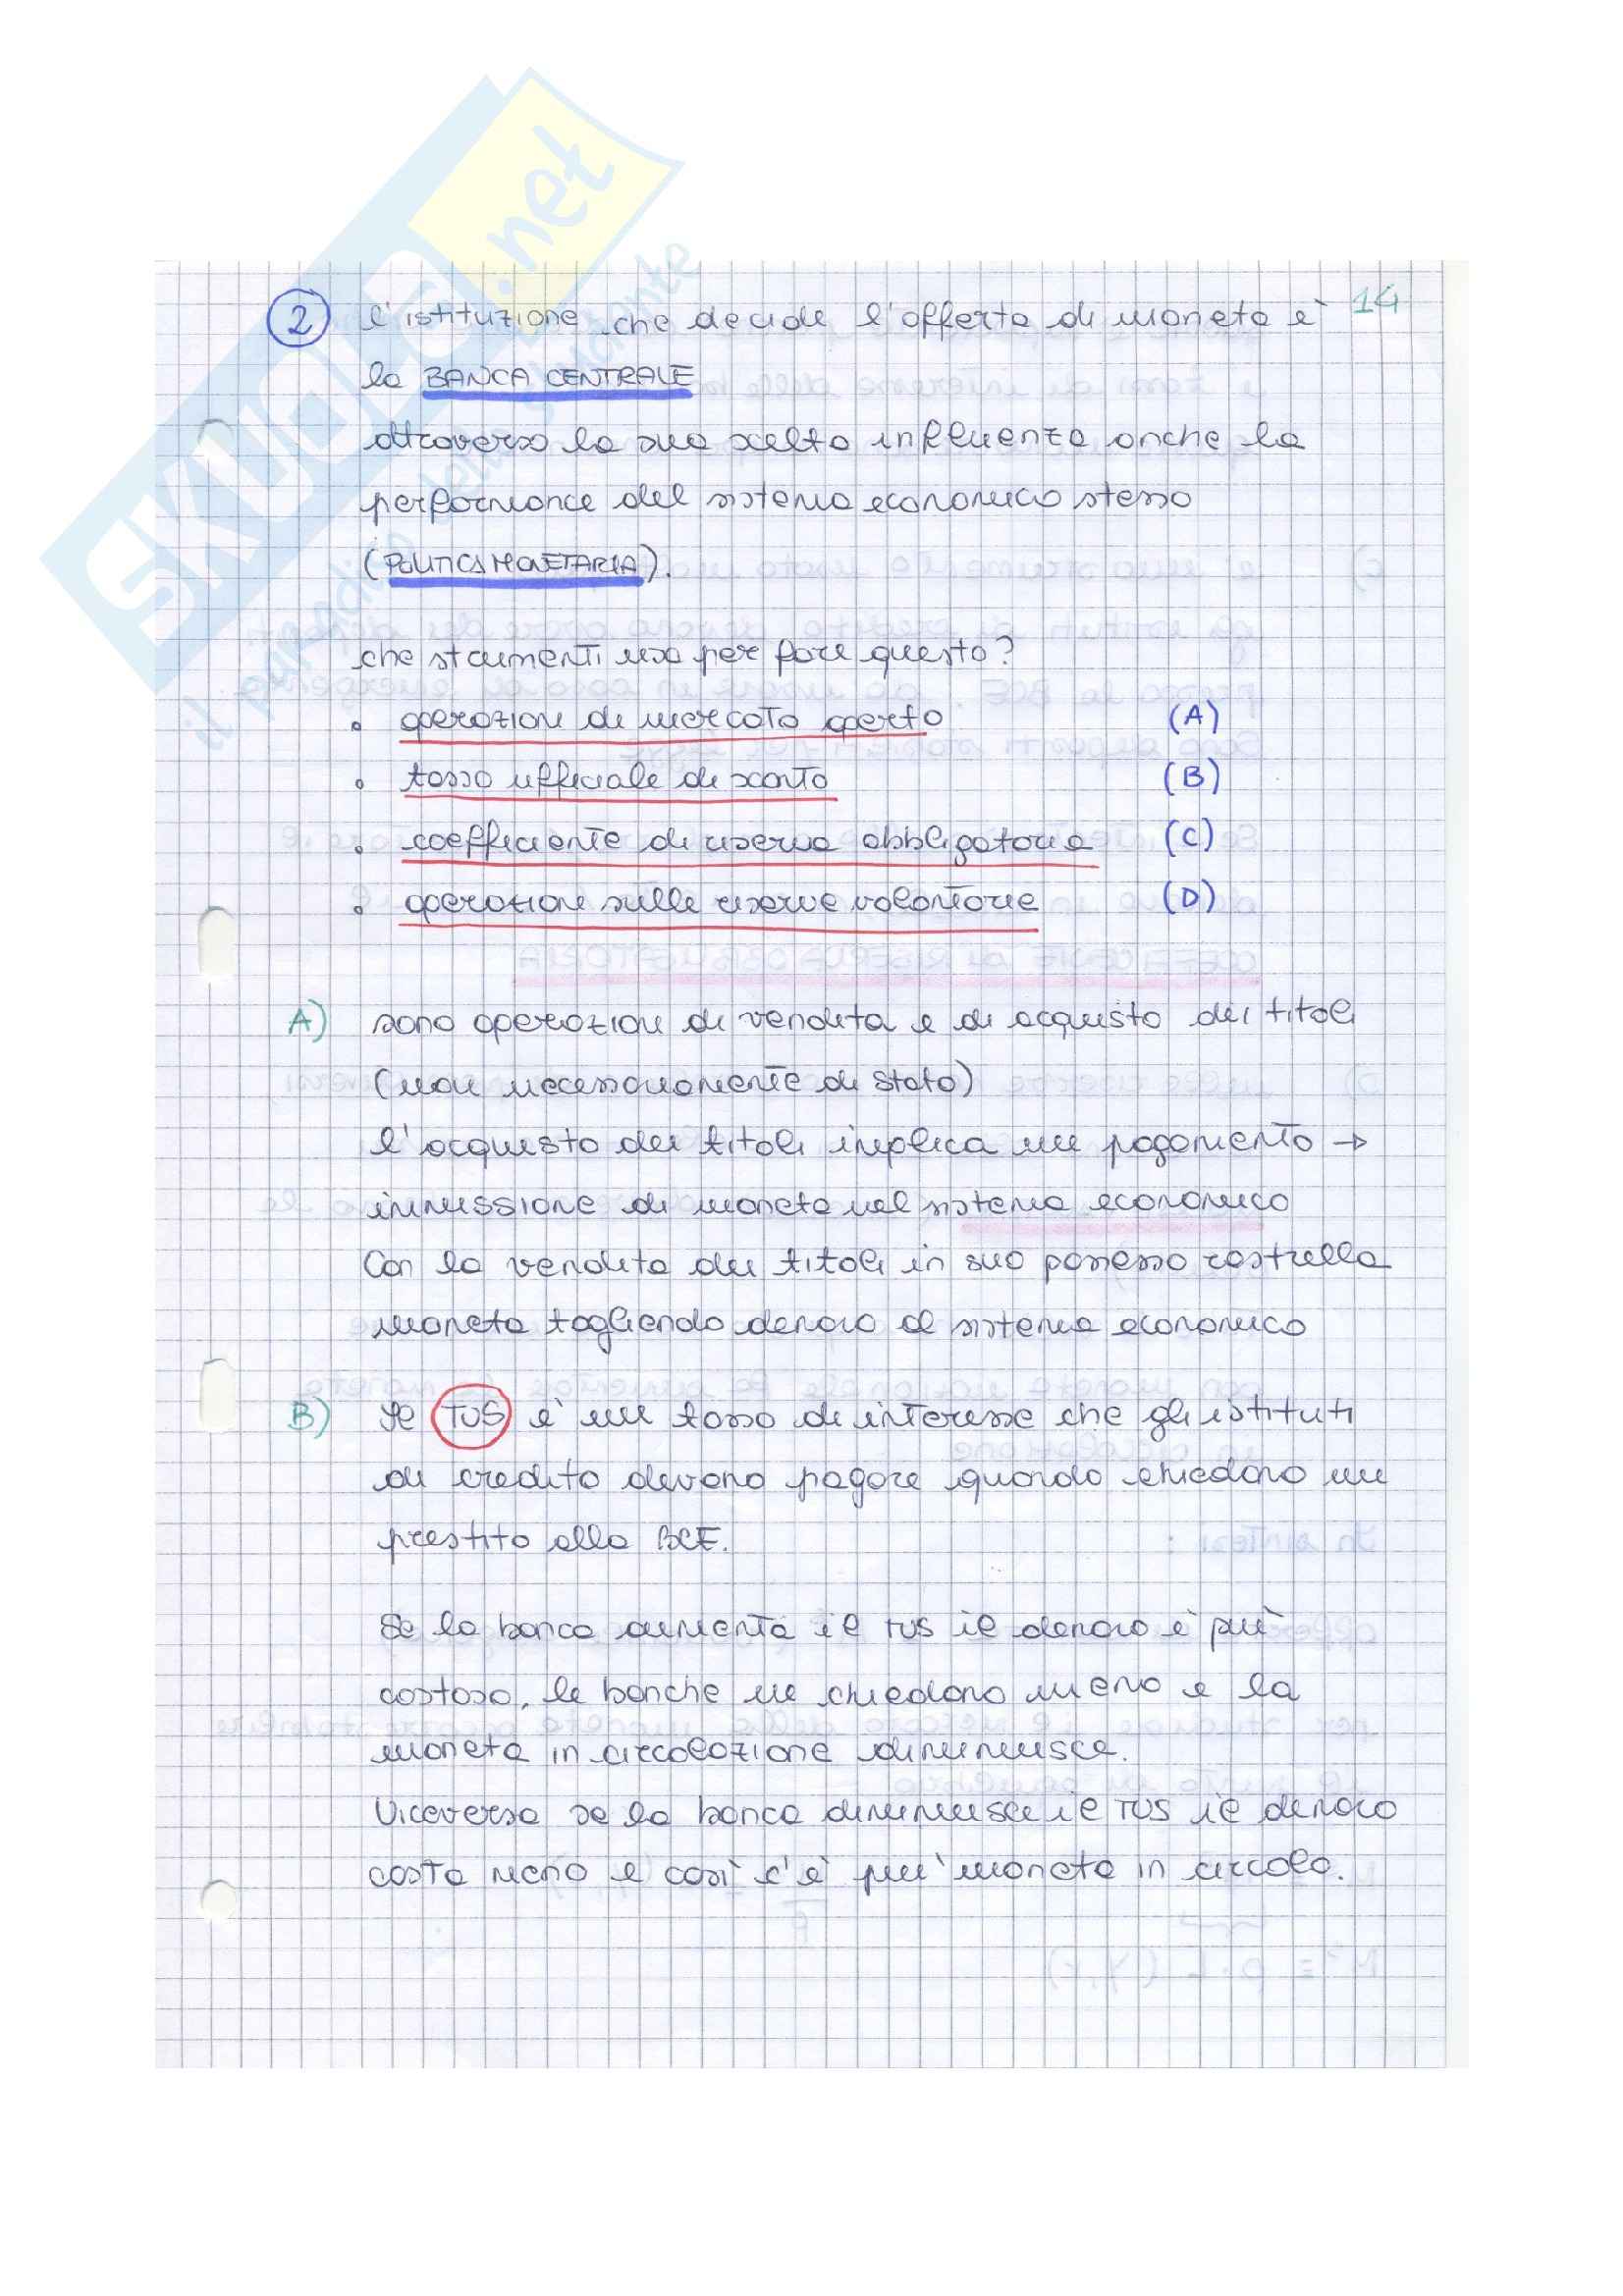 SKUOLA.net
il paradiso dello studente
14
2 l'istituzione che decide l'offerta di moneta è
la BANCA CENTRALE
attraverso la sua scelta influenza anche la
performance del sistema economico stesso
(POLITICA MONETARIA).
che strumenti usa per fare questo?
• operazioni di mercato aperto (A)
• tasso ufficiale di sconto (B)
• coefficiente di riserva obbligatoria (C)
• operazioni sulle riserve volontarie (D)
A) sono operazioni di vendita e di acquisto dei titoli
(non necessariamente di stato)
l'acquisto dei titoli implica un pagamento →
immissione di moneta nel sistema economico
Con la vendita dei titoli in suo possesso rastrella
moneta togliendo denaro al sistema economico
B) Il TUS è un tasso di interesse che gli istituti
di credito devono pagare quando chiedono un
prestito alla BCE.
Se la banca aumenta il TUS il denaro è più
costoso, le banche ne chiedono meno e la
moneta in circolazione diminuisce.
Viceversa se la banca diminuisce il TUS il denaro
costa meno e così c'è più moneta in circolo.